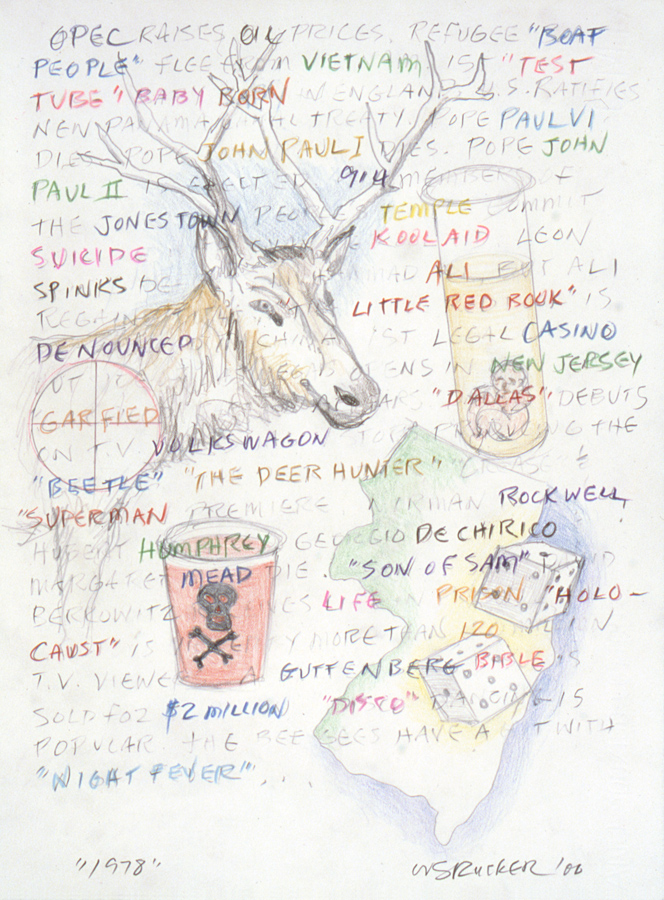 OPEC RAISES OIL PRICES. REFUGEE "BOAT
PEOPLE" FLEE FROM VIETNAM 1ST "TEST
TUBE" BABY BORN IN ENGLAND U.S. RATIFIES
NEW PANAMA CANAL TREATY. POPE PAUL VI
DIES POPE JOHN PAUL I DIES. POPE JOHN
PAUL II IS ELECTED 914 MEMBERS OF
THE JONESTOWN PEOPLE'S TEMPLE COMMIT
SUICIDE KOOLAID LEON
SPINKS ALI, BUT ALI
"LITTLE RED BOOK" IS
DENOUNCED IN CHINA 1ST LEGAL CASINO
OPENS IN NEW JERSEY
"GARFIED "DALLAS" DEBUTS
ON T.V. VOLKSWAGON STOPS THE
"BEETLE" "THE DEER HUNTER" "GREASE" &
"SUPERMAN PREMIERE NORMAN ROCKWELL,
HUBERT HUMPHREY, GEORGIO DE CHIRICO
MARGARET MEAD DIE. "SON OF SAM" DAVID
BERKOWITZ LIFE IN PRISON "HOLO-
CAUST" IS BY MORE THAN 120 MILLION
T.V. VIEWE A GUTTENBERG BIBLE IS
SOLD FOR $2 MILLION. "DISCO" DANCING IS
POPULAR. THE BEE GEES HAVE A HIT WITH
"NIGHT FEVER"....
"1978"
WS RUCKER '00